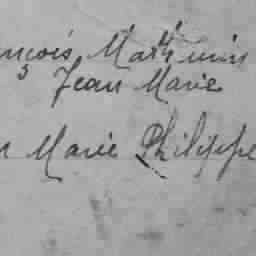 nçois Mathurin
Jean Marie
n Marie Philippe